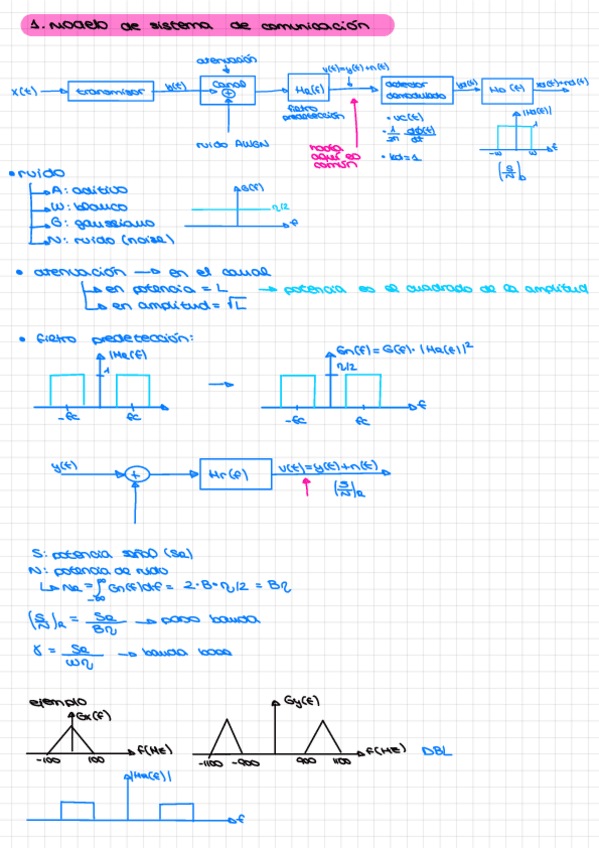 1. Modelo de sistema de comunicación
atenuación
v(t)=y(t)+n(t)
x(t) transmisor y(t) canal + HR(f) detector demodulado yD(t) HD(t) xD(t)+nD(t)
filtro predetección
ruido AWGN
hasta aquí es común
• vc(t)
• 1/2π dφ(t)/dt
• kd=1
|HD(f)|
1
-w w f
(S/N)D
• ruido
A: aditivo
W: blanco
G: gaussiano
N: ruido (noise)
G(f)
η/2
f
• atenuación → en el canal
en potencia = L → potencia es el cuadrado de la amplitud
en amplitud = √L
• filtro predetección:
|HR(f)|
1
-fc fc
→
Gn(f) = G(f) · |HR(f)|²
η/2
-fc fc f
y(t) + Hr(f) v(t)=y(t)+n(t)
(S/N)R
S: potencia señal (SR)
N: potencia de ruido
NR = ∫-∞^∞ Gn(f)df = 2·B·η/2 = Bη
(S/N)R = SR/Bη → paso banda
γ = SR/Wη → banda base
ejemplo
Gx(f)
-100 100 f(Hz)
Gy(f)
-1100 -900 900 1100 f(Hz) DBL
|HR(f)|
f